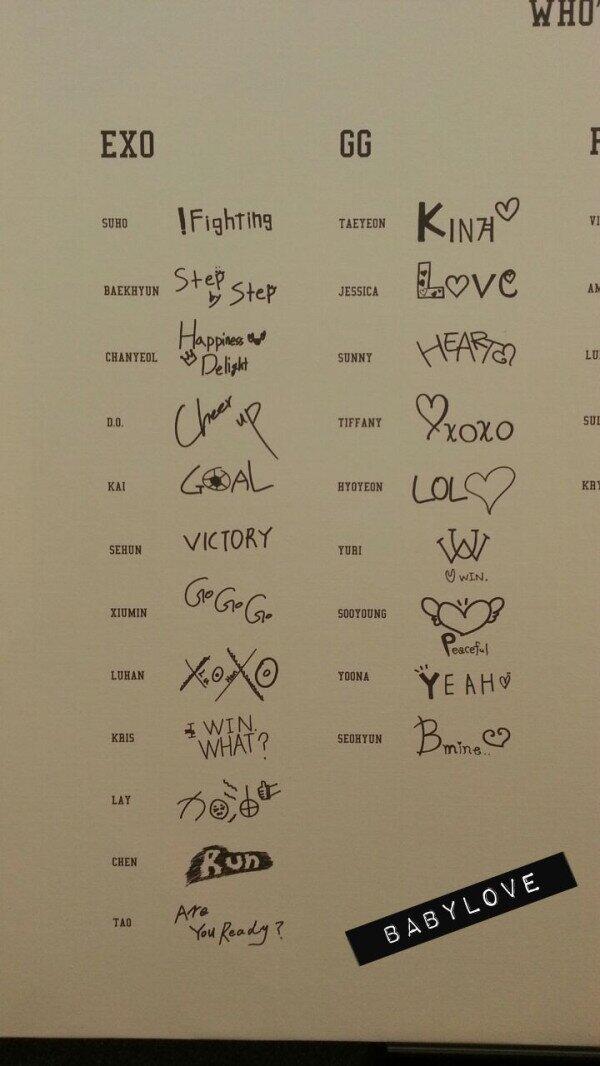 WHO'
EXO
SUHO !Fighting
BAEKHYUN Step by Step
CHANYEOL Happiness Delight
D.O. Cheer up
KAI GOAL
SEHUN VICTORY
XIUMIN Go Go Go
LUHAN XOXO
KRIS I WIN. WHAT?
LAY
CHEN Run
TAO Are You Ready?
GG
TAEYEON KINA
JESSICA LOVE
SUNNY HEART
TIFFANY xoxo
HYOYEON LOL
YURI W WIN.
SOOYOUNG Peaceful
YOONA YEAH
SEOHYUN B mine..
VI
AM
LU
SUL
KRY
BABYLOVE